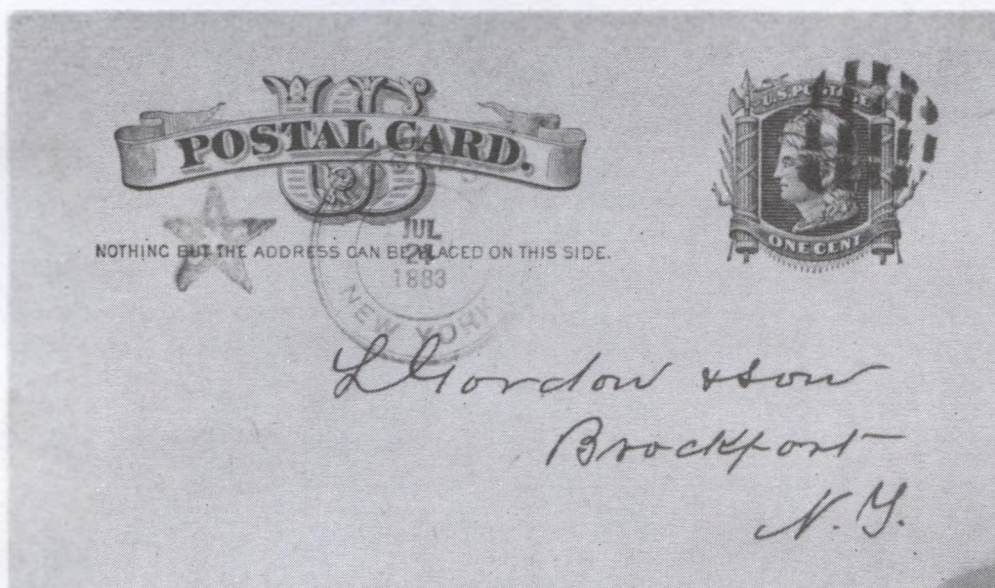 US
POSTAL CARD.
U.S. POSTAGE
ONE CENT
NOTHING BUT THE ADDRESS CAN BE PLACED ON THIS SIDE.
JUL
1883
NEW YORK
L Gordon & Son
Brockport
N.Y.